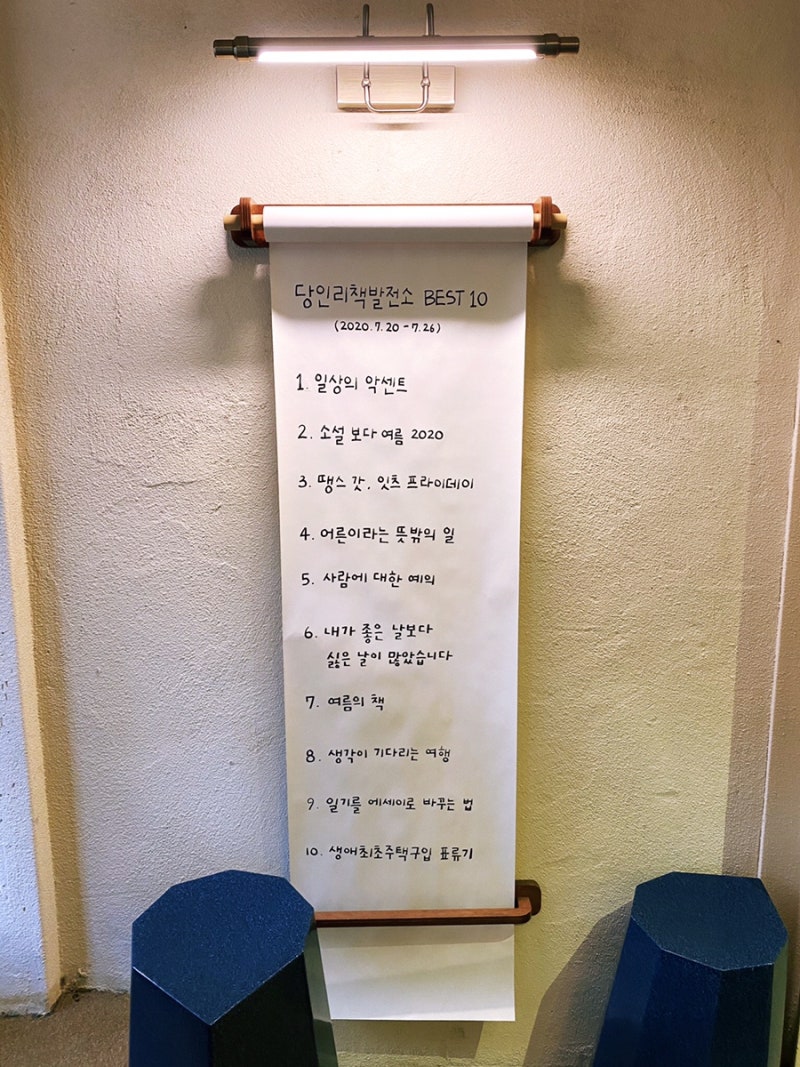 당인리책발전소 BEST 10
(2020.7.20 - 7.26)
1. 일상의 악센트
2. 소설 보다 여름 2020
3. 땡스 갓, 잇츠 프라이데이
4. 어른이라는 뜻밖의 일
5. 사람에 대한 예의
6. 내가 좋은 날보다
싫은 날이 많았습니다
7. 여름의 책
8. 생각이 기다리는 여행
9. 일기를 에세이로 바꾸는 법
10. 생애최초주택구입 표류기